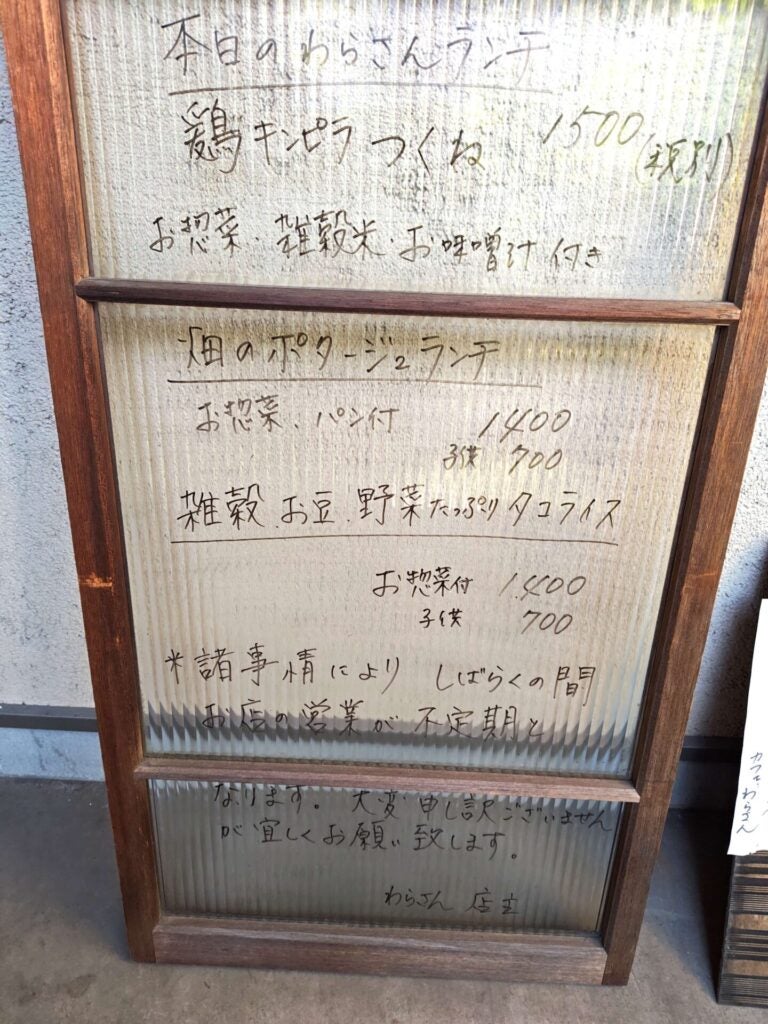 本日のわらさんランチ
鶏キンピラつくね 1500(税別)
お惣菜・雑穀米・お味噌汁付き
畑のポタージュランチ
お惣菜、パン付 1400
子供 700
雑穀、お豆、野菜たっぷりタコライス
お惣菜付 1400
子供 700
*諸事情により しばらくの間
お店の営業が不定期と
なります。大変申し訳ございません
が宜しくお願い致します。
わらさん 店主
カフェ わらさん